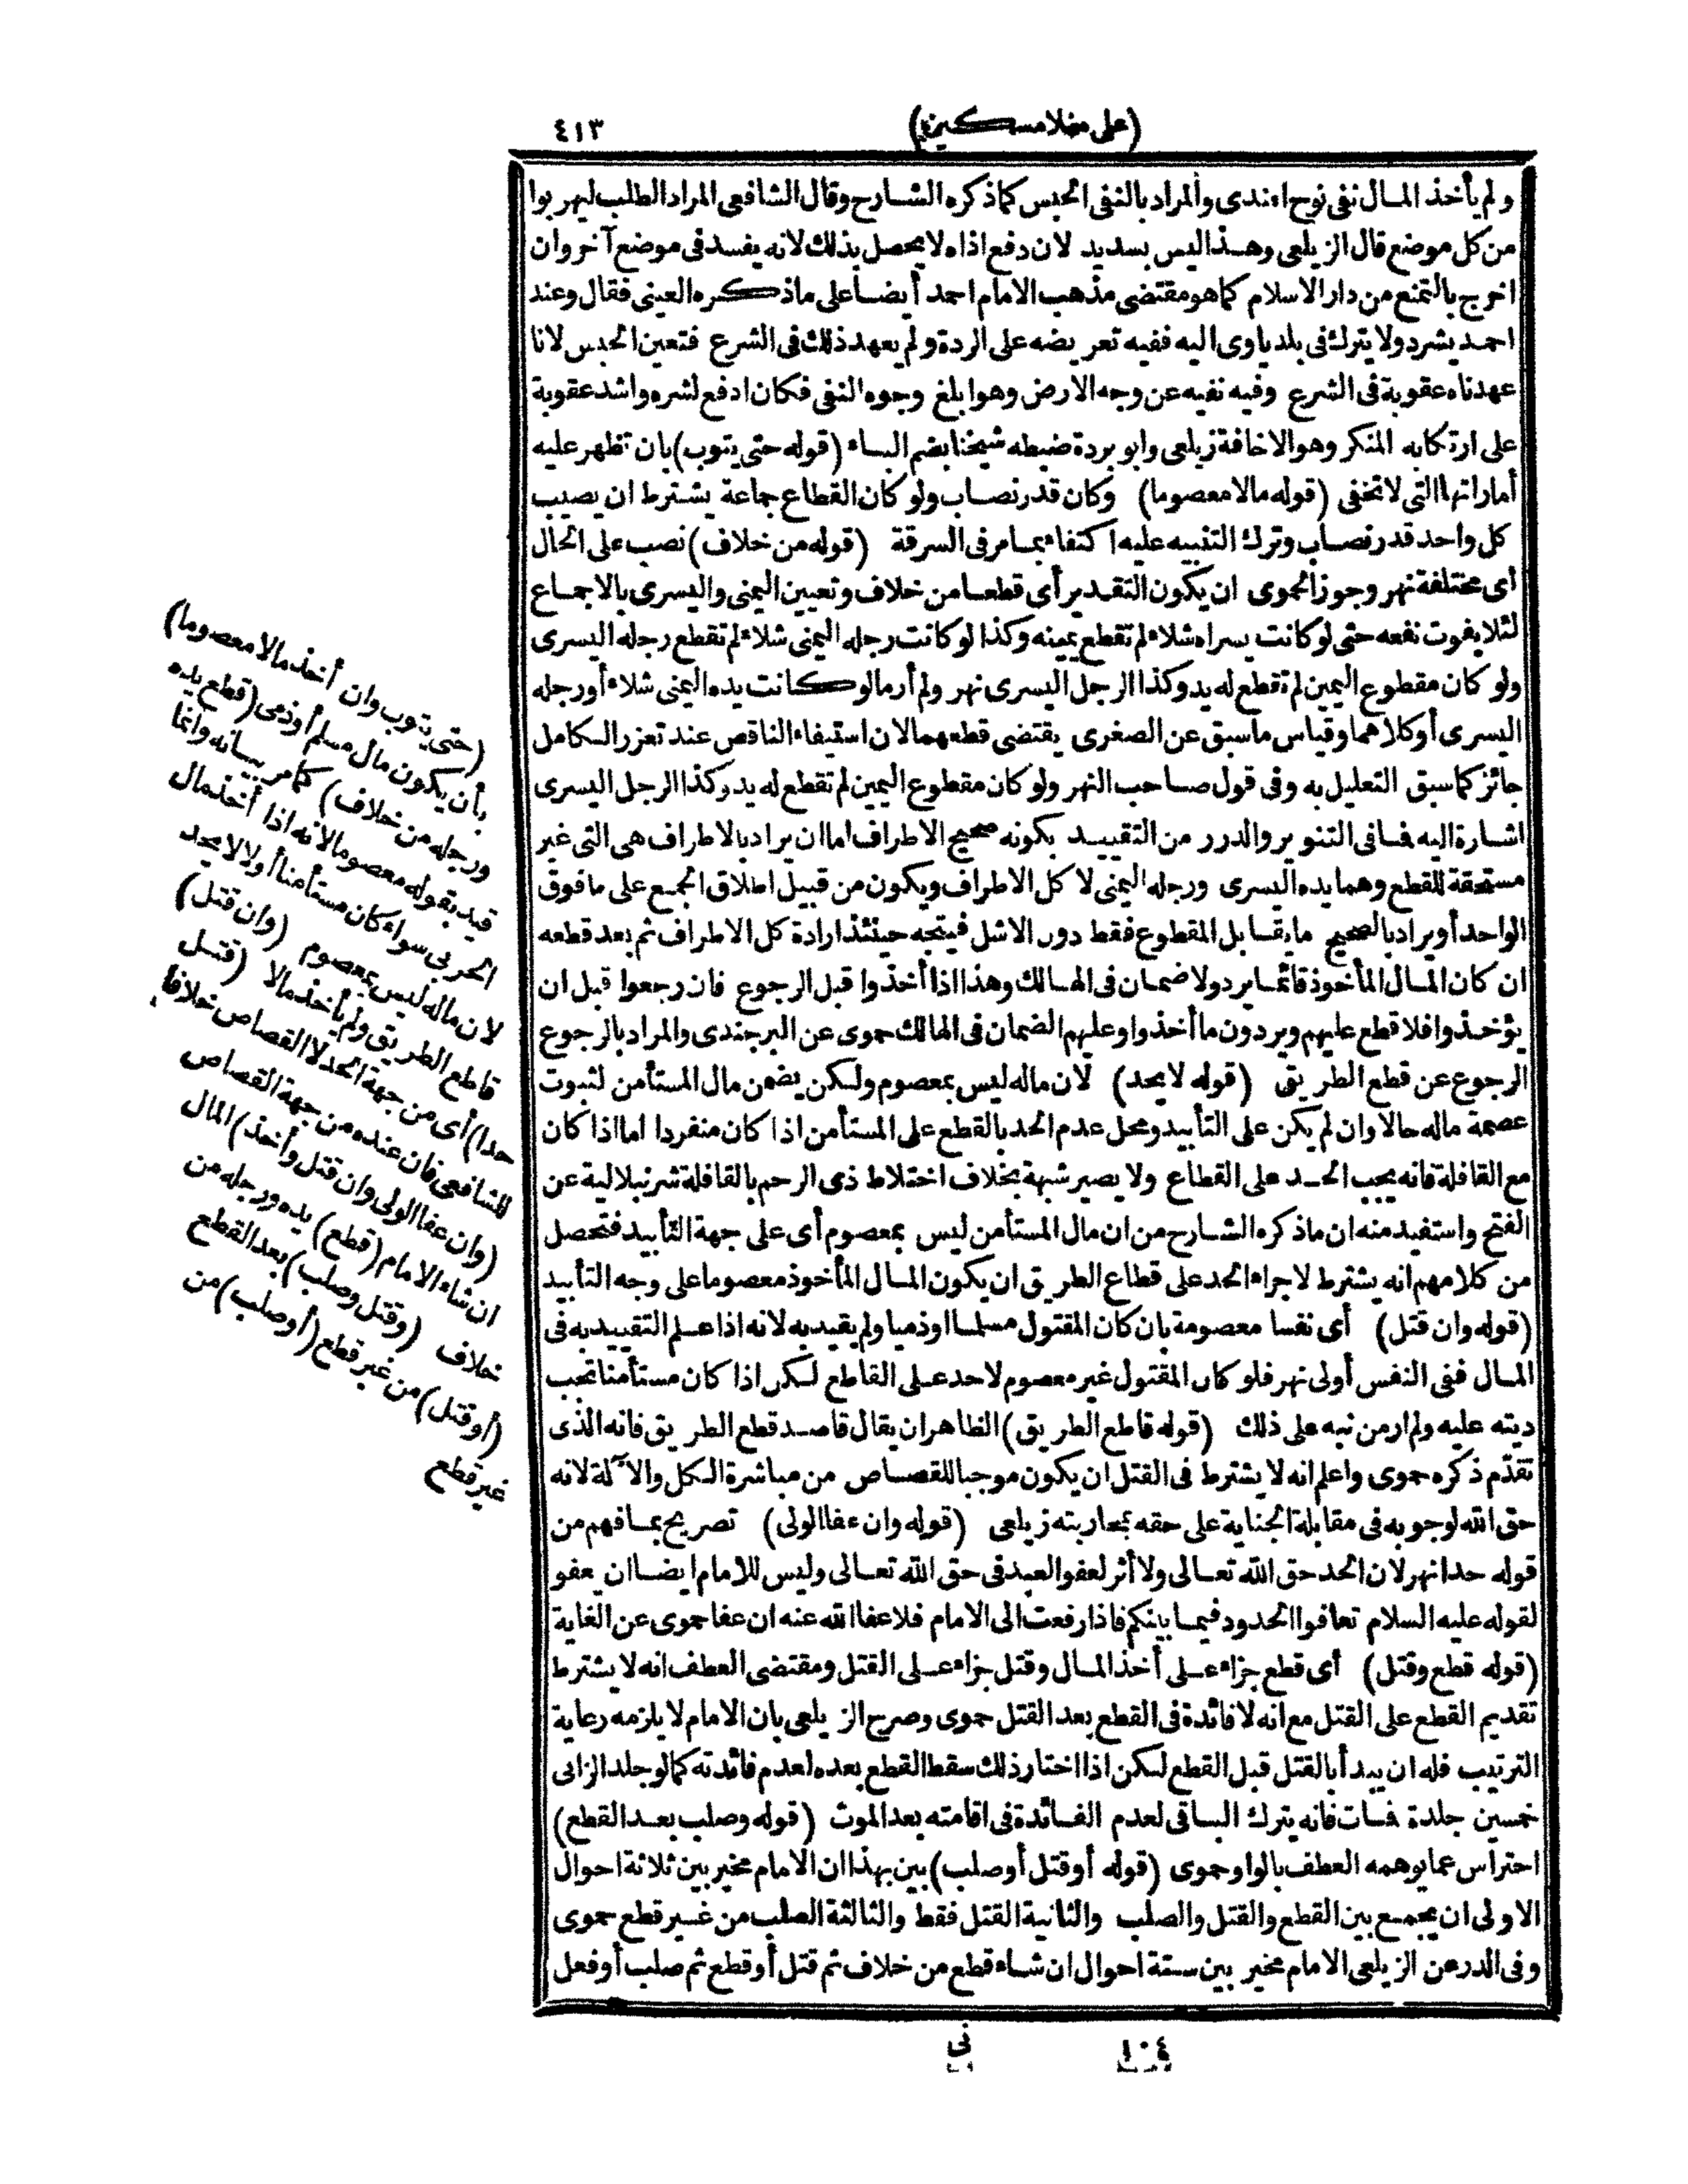 (على منلا مسكين)
٤١٣
ولم يأخذ المال نفى نوح افندى والمراد بالنفى الحبس كما ذكره الشارح وقال الشافعى المراد الطلب ليهربوا
من كل موضع قال الزيلعى وهذا ليس بسديد لان دفع اذاه لا يحصل بذلك لانه يفسد فى موضع آخر وان
اخرج بالتمنع من دار الاسلام كما هو مقتضى مذهب الامام احمد أيضا على ما ذكره العينى فقال وعند
احمد يشرد ولا يترك فى بلد ياوى اليه ففيه تعريضه على الردة ولم يعهد ذلك فى الشرع فتعين الحبس لانا
عهدناه عقوبة فى الشرع وفيه نفيه عن وجه الارض وهو ابلغ وجوه النفى فكان ادفع لشره واشد عقوبة
على ارتكابه المنكر وهو الاخافة زيلعى وابو بردة ضبطه شيخنا بضم الباء (قوله حتى يتوب) بان تظهر عليه
أماراتها التى لا تخفى (قوله مالا معصوما) وكان قدر نصاب ولو كان القطاع جماعة يشترط ان يصيب
كل واحد قدر نصاب وترك التنبيه عليه اكتفاء بما مر فى السرقة (قوله من خلاف) نصب على الحال
أى مختلفة نهر وجوز الحموى ان يكون التقدير أى قطعا من خلاف وتعيين اليمنى واليسرى بالاجماع
لئلا يفوت نفعه حتى لو كانت يسراه شلاء لم تقطع يمينه وكذا لو كانت رجله اليمنى شلاء لم تقطع رجله اليسرى
ولو كان مقطوع اليمين لم تقطع له يد وكذا الرجل اليسرى نهر ولم أر ما لو كانت يده اليمنى شلاء أو رجله
اليسرى أو كلاهما وقياس ما سبق عن الصغرى يقتضى قطعهما لان استيفاء الناقص عند تعزر الكامل
جائز كما سبق التعليل به وفى قول صاحب النهر ولو كان مقطوع اليمين لم تقطع له يد وكذا الرجل اليسرى
اشارة اليه فما فى التنوير والدرر من التقييد بكونه صحيح الاطراف اما ان يراد بالاطراف هى التى غير
مستحقة للقطع وهما يده اليسرى ورجله اليمنى لا كل الاطراف ويكون من قبيل اطلاق الجمع على ما فوق
الواحد أو يراد بالصحيح ما يقابل المقطوع فقط دون الاشل فيتجه حينئذ ارادة كل الاطراف ثم بعد قطعه
ان كان المال المأخوذ قائما يرد ولا ضمان فى الهالك وهذا اذا أخذوا قبل الرجوع فان رجعوا قبل ان
يؤخذوا فلا قطع عليهم ويردون ما أخذوا وعليهم الضمان فى الهالك حموى عن البرجندى والمراد بالرجوع
الرجوع عن قطع الطريق (قوله لا يحد) لان ماله ليس بمعصوم ولكن يضمن مال المستأمن لثبوت
عصمة ماله حالا وان لم يكن على التأبيد ومحل عدم الحد بالقطع على المستأمن اذا كان منفردا اما اذا كان
مع القافلة فانه يجب الحد على القطاع ولا يصير شبهة بخلاف اختلاط ذى الرحم بالقافلة شرنبلالية عن
الفتح واستفيد منه ان ما ذكره الشارح من ان مال المستأمن ليس بمعصوم أى على جهة التأبيد فتحصل
من كلامهم انه يشترط لاجراء الحد على قطاع الطريق ان يكون المال المأخوذ معصوما على وجه التأبيد
(قوله وان قتل) أى نفسا معصومة بان كان المقتول مسلما او ذميا ولم يقيد به لانه اذا علم التقييد به فى
المال ففى النفس أولى نهر فلو كان المقتول غير معصوم لا حد على القاطع لكن اذا كان مستأمنا تجب
ديته عليه ولم ار من نبه على ذلك (قوله قاطع الطريق) الظاهر ان يقال قاصد قطع الطريق فانه الذى
تقدم ذكره حموى واعلم انه لا يشترط فى القتل ان يكون موجبا للقصاص من مباشرة الكل والآلة لانه
حق الله لوجوبه فى مقابلة الجناية على حقه بمحاربته زيلعى (قوله وان عفا الولى) تصريح بما فهم من
قوله حدا نهر لان الحد حق الله تعالى ولا أثر لعفو العبد فى حق الله تعالى وليس للامام ايضا ان يعفو
لقوله عليه السلام تعافوا الحدود فيما بينكم فاذا رفعت الى الامام فلا عفا الله عنه ان عفا حموى عن الغاية
(قوله قطع وقتل) أى قطع جزاء على أخذ المال وقتل جزاء على القتل ومقتضى العطف انه لا يشترط
تقديم القطع على القتل مع انه لا فائدة فى القطع بعد القتل حموى وصرح الزيلعى بان الامام لا يلزمه رعاية
الترتيب فله ان يبدأ بالقتل قبل القطع لكن اذا اختار ذلك سقط القطع بعده لعدم فائدته كما لو جلد الزانى
خمسين جلدة فمات فانه يترك الباقى لعدم الفائدة فى اقامته بعد الموت (قوله وصلب بعد القطع)
احتراس عما يوهمه العطف بالواو حموى (قوله أو قتل أو صلب) بين بهذا ان الامام مخير بين ثلاثة احوال
الاولى ان يجمع بين القطع والقتل والصلب والثانية القتل فقط والثالثة الصلب من غير قطع حموى
وفى الدر عن الزيلعى الامام مخير بين ستة احوال ان شاء قطع من خلاف ثم قتل أو قطع ثم صلب أو فعل
(حتى يتوب وان أخذ مالا معصوما)
بأن يكون مال مسلم أو ذمى (قطع يده
ورجله من خلاف) كما مر بيانه وانما
قيد بقوله معصوما لانه اذا أخذ مال
الحربى سواء كان مستأمنا أولا لا يحد
لان ماله ليس بمعصوم (وان قتل)
قاطع الطريق ولم يأخذ مالا (قتل
حدا) أى من جهة الحد لا القصاص خلافا
للشافعى فان عنده من جهة القصاص
(وان عفا الولى وان قتل وأخذ) المال
ان شاء الامام (قطع) يده ورجله من
خلاف (وقتل وصلب) بعد القطع
(أو قتل) من غير قطع (أو صلب) من
غير قطع
١٠٤
نى